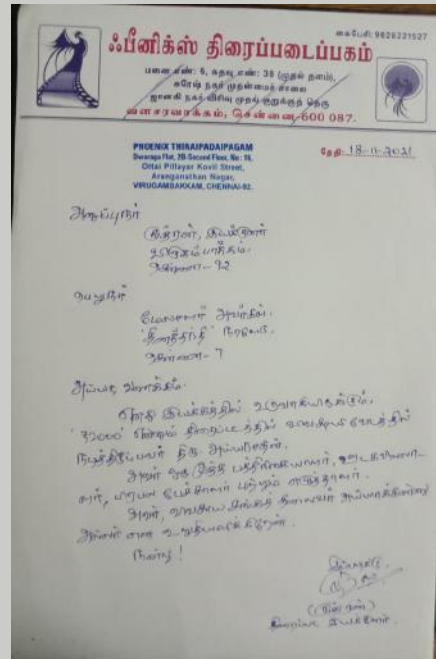 கைபேசி: 9626221527
ஃபீனிக்ஸ் திரைப்படைப்பகம்
மனை எண்: 6, கதவு எண்: 38 (முதல் தளம்),
சுரேஷ் நகர் முதன்மைச் சாலை
ஜானகி நகர் விரிவு முதல் குறுக்குத் தெரு
வளசரவாக்கம், சென்னை 600 087.
PHOENIX THIRAIPADAIPAGAM
Dwaraga Flat, 2B-Second Floor, No: 16,
Ottai Pillayar Kovil Street,
Aranganathan Nagar,
VIRUGAMBAKKAM, CHENNAI-92.
தேதி: 18-11-2021
அனுப்புநர்
ருத்ரன், இயக்குனர்
விருகம்பாக்கம்.
சென்னை-92
பெறுநர்
மேலாளர் அவர்கள்.
'தினத்தந்தி' நாளேடு.
சென்னை-7
அய்யா வணக்கம்.
எனது இயக்கத்தில் உருவாகியிருக்கும்.
'32000' என்னும் திரைப்படத்தில் வக்கீல் வேடத்தில்
நடித்திருப்பவர் திரு அய்யாகண்ணு.
அவர் ஒரு மூத்த பத்திரிகையாளர், ஊடகவியலா-
ளர், பேச்சாளர் மற்றும் எழுத்தாளர்.
அவர், விவசாய சங்கத் தலைவர் அய்யாக்கண்ணு
அல்ல என உறுதியளிக்கிறேன்.
நன்றி!
இப்படிக்கு
(ருத்ரன்)
திரைப்பட இயக்குனர்.